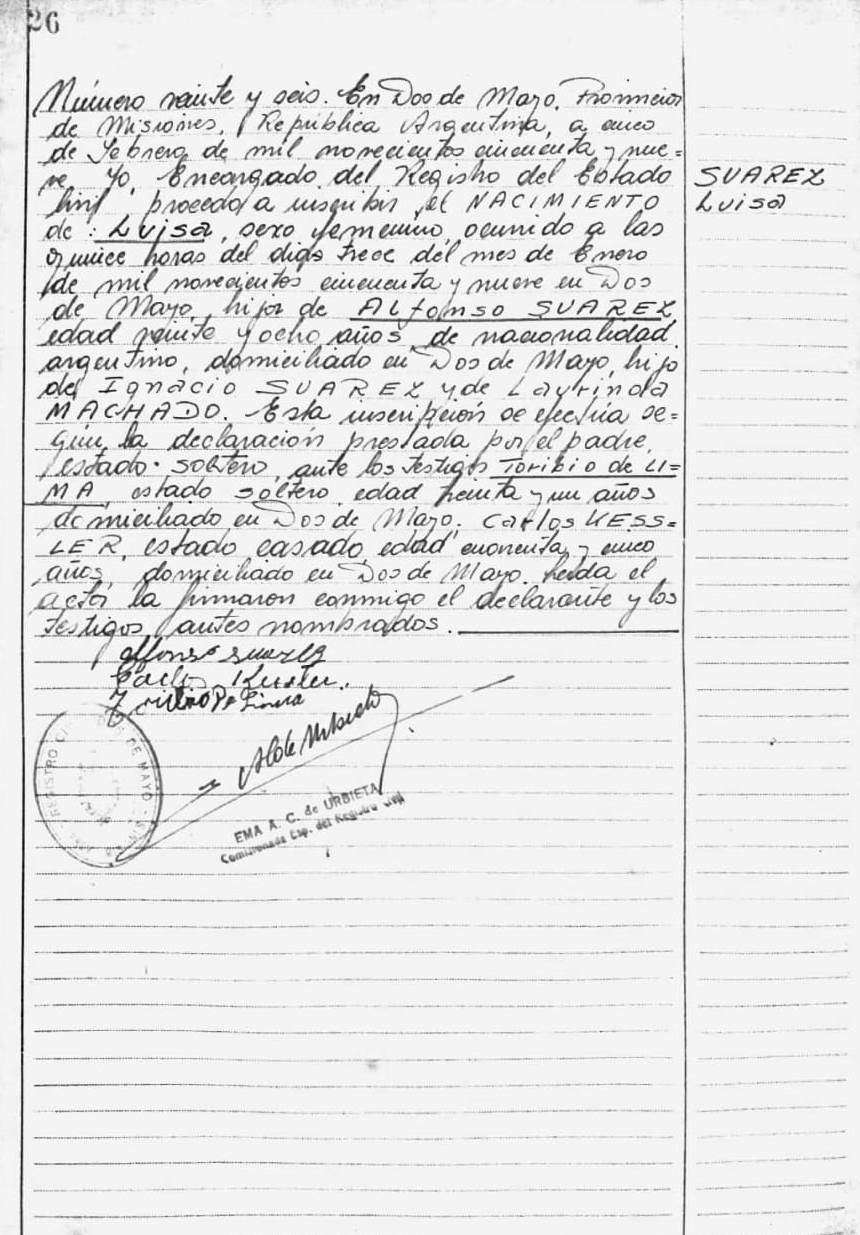 26
Número veinte y seis. En Dos de Mayo, Provincia
de Misiones, República Argentina, a cinco
de Febrero de mil novecientos cincuenta y nue=
ve Yo, Encargado del Registro del Estado
Civil, procedo a inscribir el NACIMIENTO
de: Luisa, sexo femenino, ocurrido a las
quince horas del día trece del mes de Enero
de mil novecientos cincuenta y nueve en Dos
de Mayo, hija de ALfonso SUAREZ,
edad veinte y ocho años, de nacionalidad
argentino, domiciliado en Dos de Mayo, hijo
de Ignacio SUAREZ y de Laurinda
MACHADO. Esta inscripción se efectúa se=
gún la declaración prestada por el padre,
estado soltero, ante los testigos Toribio de LI=
MA, estado soltero, edad treinta y un años
domiciliado en Dos de Mayo. Carlos KESS=
LER, estado casado edad cuarenta y cinco
años, domiciliado en Dos de Mayo. Leída el
acta la firmaron conmigo el declarante y los
testigos antes nombrados.
SUAREZ
Luisa
Alfonso Suarez
REGISTRO DE MAYO
EMA A. C. de URBIETA
del Registro Civil